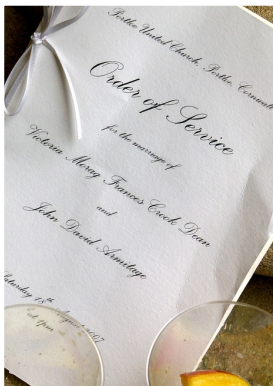 Porthe United Church, Porthe, Cornwall
Order of Service
for the marriage of
Victoria Morag Frances Crook Dean
and
John David Armitage
Saturday 18th August 2007